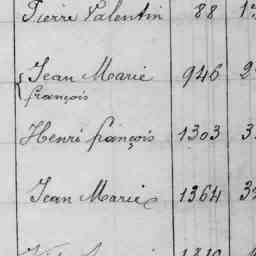 Pierre Valentin 88
Jean Marie 946
françois
Henri françois 1303
Jean Marie 1364